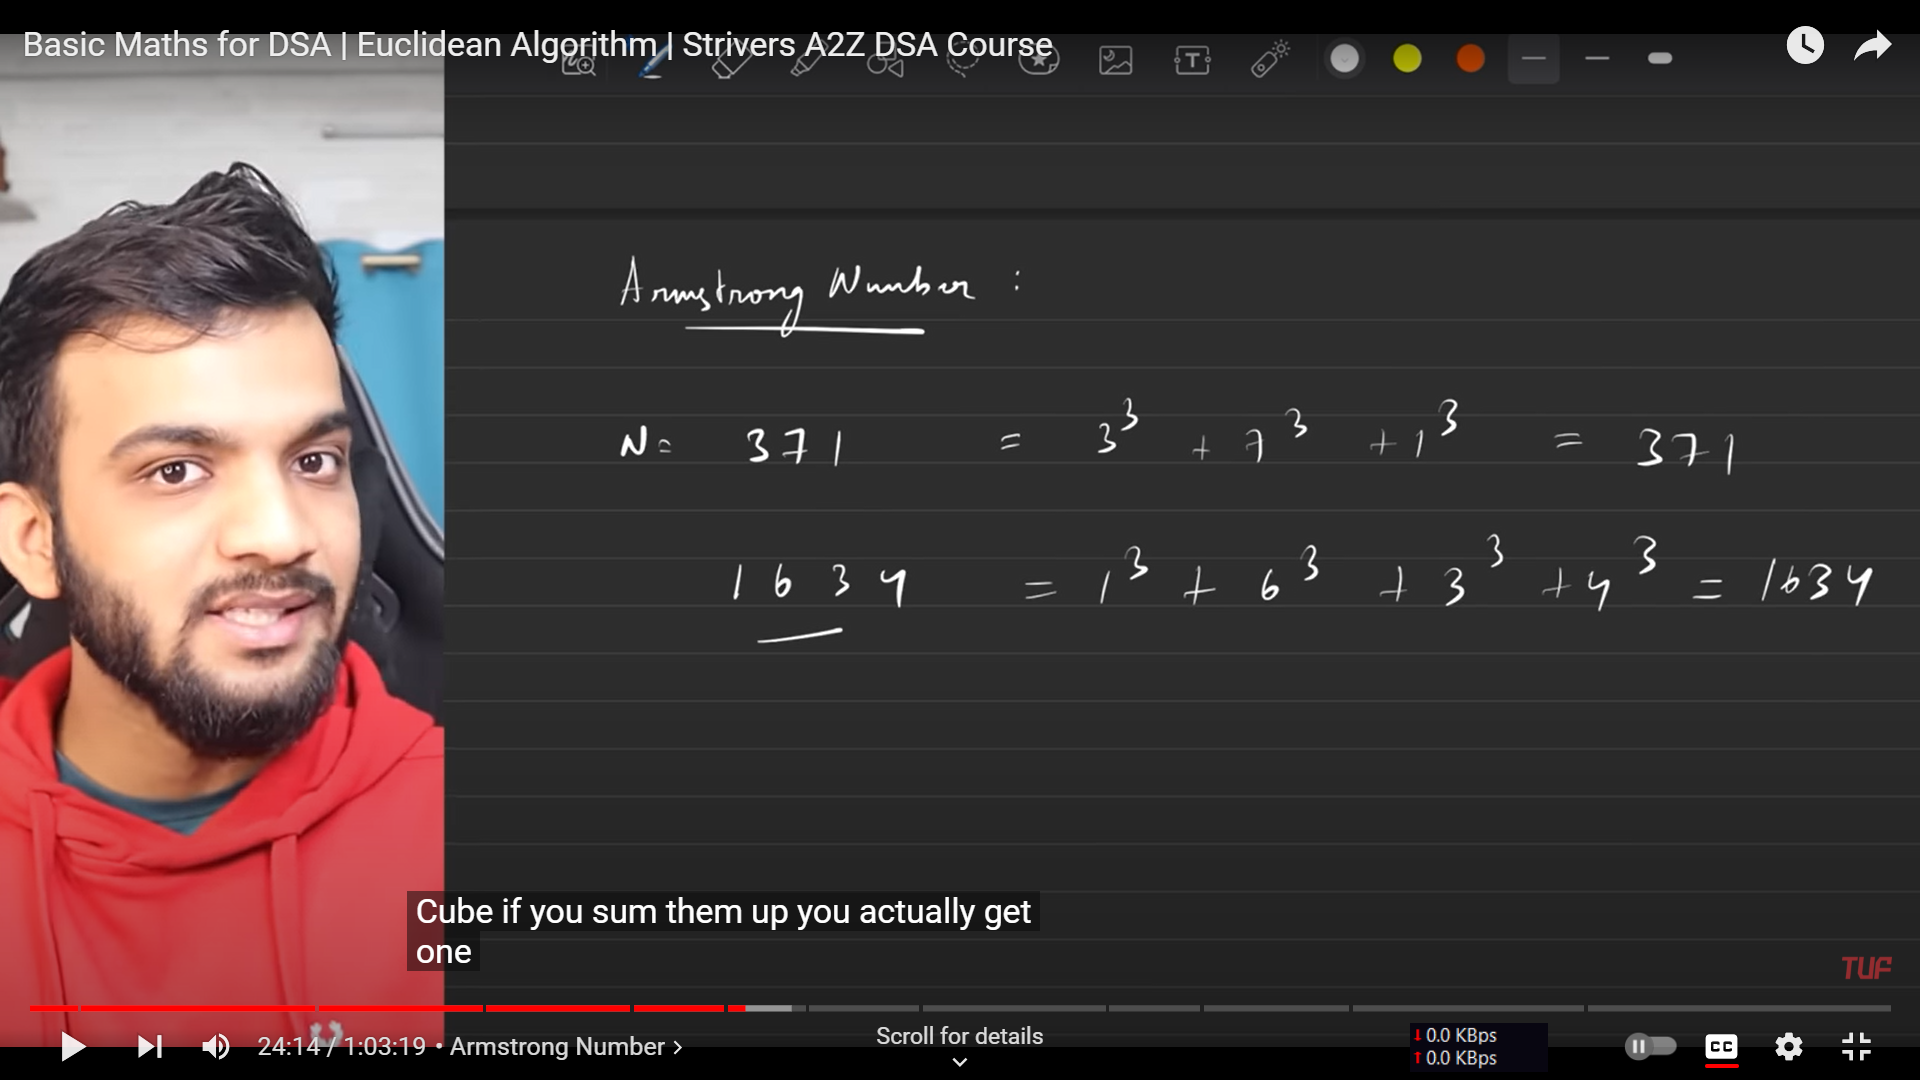 Basic Maths for DSA | Euclidean Algorithm | Strivers A2Z DSA Course
Armstrong Number :
N = 371 = 3³ + 7³ + 1³ = 371
1634 = 1³ + 6³ + 3³ + 4³ = 1634
Cube if you sum them up you actually get
one
TUF
24:14 / 1:03:19 • Armstrong Number >
Scroll for details
↓ 0.0 KBps
↑ 0.0 KBps
CC